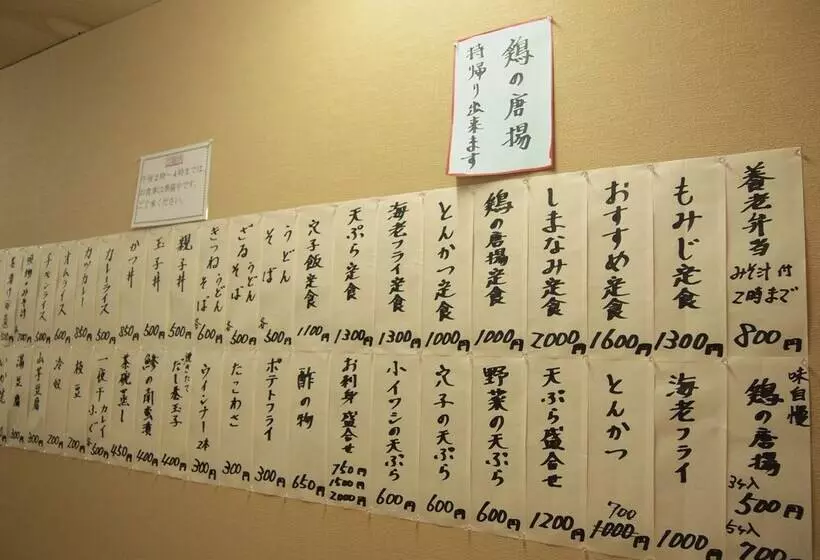 鶏の唐揚
持帰り出来ます
午後2時〜4時までは
お食事は準備中です。
ご了承ください。
養老弁当
みそ汁付
2時まで
800円
もみじ定食
1300円
おすすめ定食
1600円
しまなみ定食
2000円
鶏の唐揚定食
1000円
とんかつ定食
1000円
海老フライ定食
1300円
天ぷら定食
1300円
穴子飯定食
1100円
うどん
そば
各500円
ざるうどん
そば
各500円
きつねうどん
そば
各600円
親子丼
500円
玉子丼
500円
かつ丼
850円
カレーライス
500円
カツカレー
850円
オムライス
600円
チキンライス
500円
味自慢
鶏の唐揚
3ヶ入
500円
5ヶ入
700円
海老フライ
1000円
とんかつ
700
1000円
天ぷら盛合せ
1200円
野菜の天ぷら
600円
穴子の天ぷら
600円
小イワシの天ぷら
600円
お刺身盛合せ
750円
1500円
2000円
酢の物
650円
ポテトフライ
300円
たこわさ
300円
ウインナー2本
300円
焼きたて
だし巻玉子
400円
鯵の南蛮漬
400円
茶碗蒸し
450円
一夜干カレイ
ふぐ
各500円
枝豆
200円
冷奴
200円
山芋豆腐
300円
湯豆腐
300円